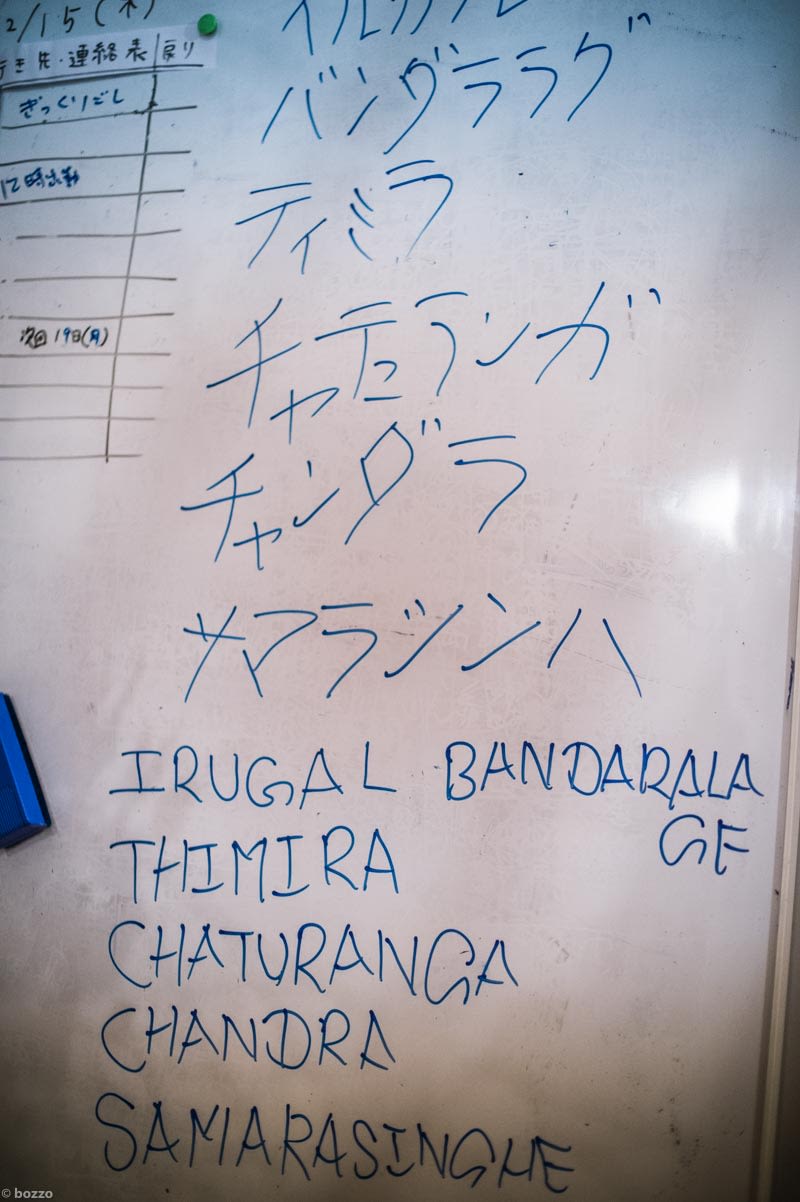 2/15(木)
行き先・連絡表 戻り
ぎっくりごし
12時出勤
次回19日(月)
バンダララゲ
ティミラ
チャテュランガ
チャンダラ
サマラシンハ
IRUGAL BANDARALA
GE
THIMIRA
CHATURANGA
CHANDRA
SAMARASINGHE
© bozzo